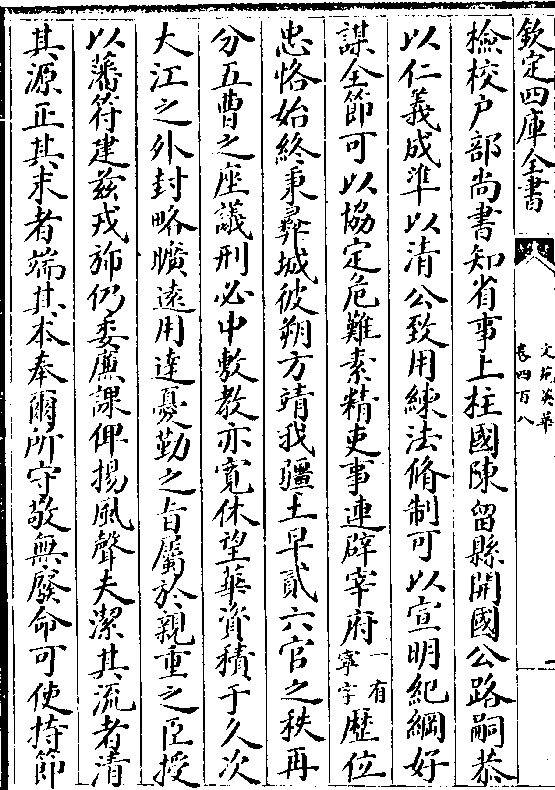 欽定四庫全書
文苑英華
卷四百八
檢校户部尚書知省事上柱國陳留縣開國公路嗣恭
以仁義成準以清公致用練法脩制可以宣明紀綱好
謀全節可以協定危難素精吏事連辟宰府一有寜字歴位
忠恪始終秉彛城彼朔方靖我疆土早貳六官之秩再
分五曹之座議刑必中敷教亦寛休望華資積于久次
大江之外封略曠遠用達憂勤之旨屬於親重之臣授
以藩符建兹戎斾仍委廉課俾揚風聲夫潔其流者清
其源正其末者端其本奉爾所守敬無廢命可使持節